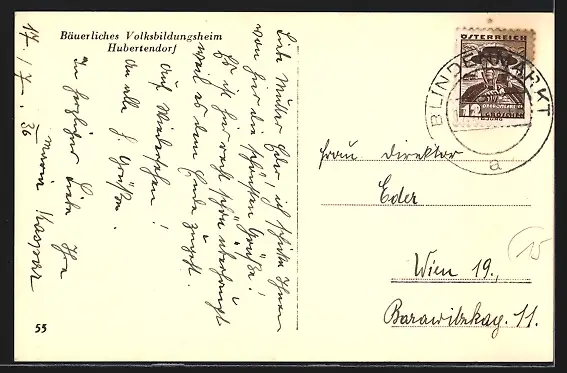 Bäuerliches Volksbildungsheim
Hubertendorf
17./7. 36
Liebe Mutter Eder, ich schicke Ihnen
von hier die schönsten Grüße!
Es ist hier recht schön
weil es dem Ende zugeht.
Auf Wiedersehen!
An alle h. Grüße.
In herzlicher Liebe Ihre
Maria Kaspar
55
ÖSTERREICH
12
GROSCHEN
BLINDENMARKT
a
Frau Direktor
Eder
Wien 19.,
Barawitzkag. 11.
15